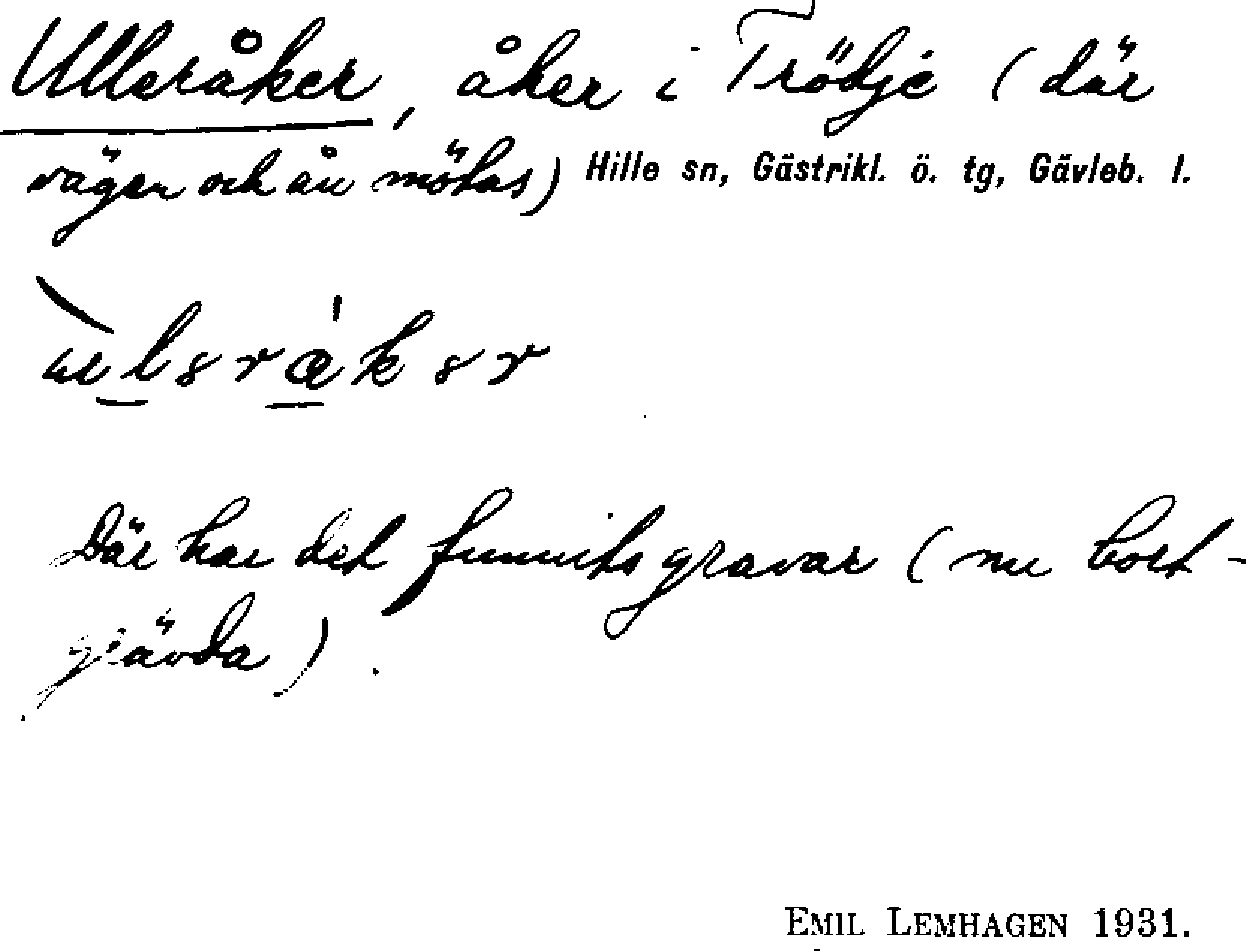 Ulleråker, åker i Trödje (där
vägen och ån mötas) Hille sn, Gästrikl. ö. tg, Gävleb. l.
Där har det funnits gravar (nu bort-
grävda).
EMIL LEMHAGEN 1931.